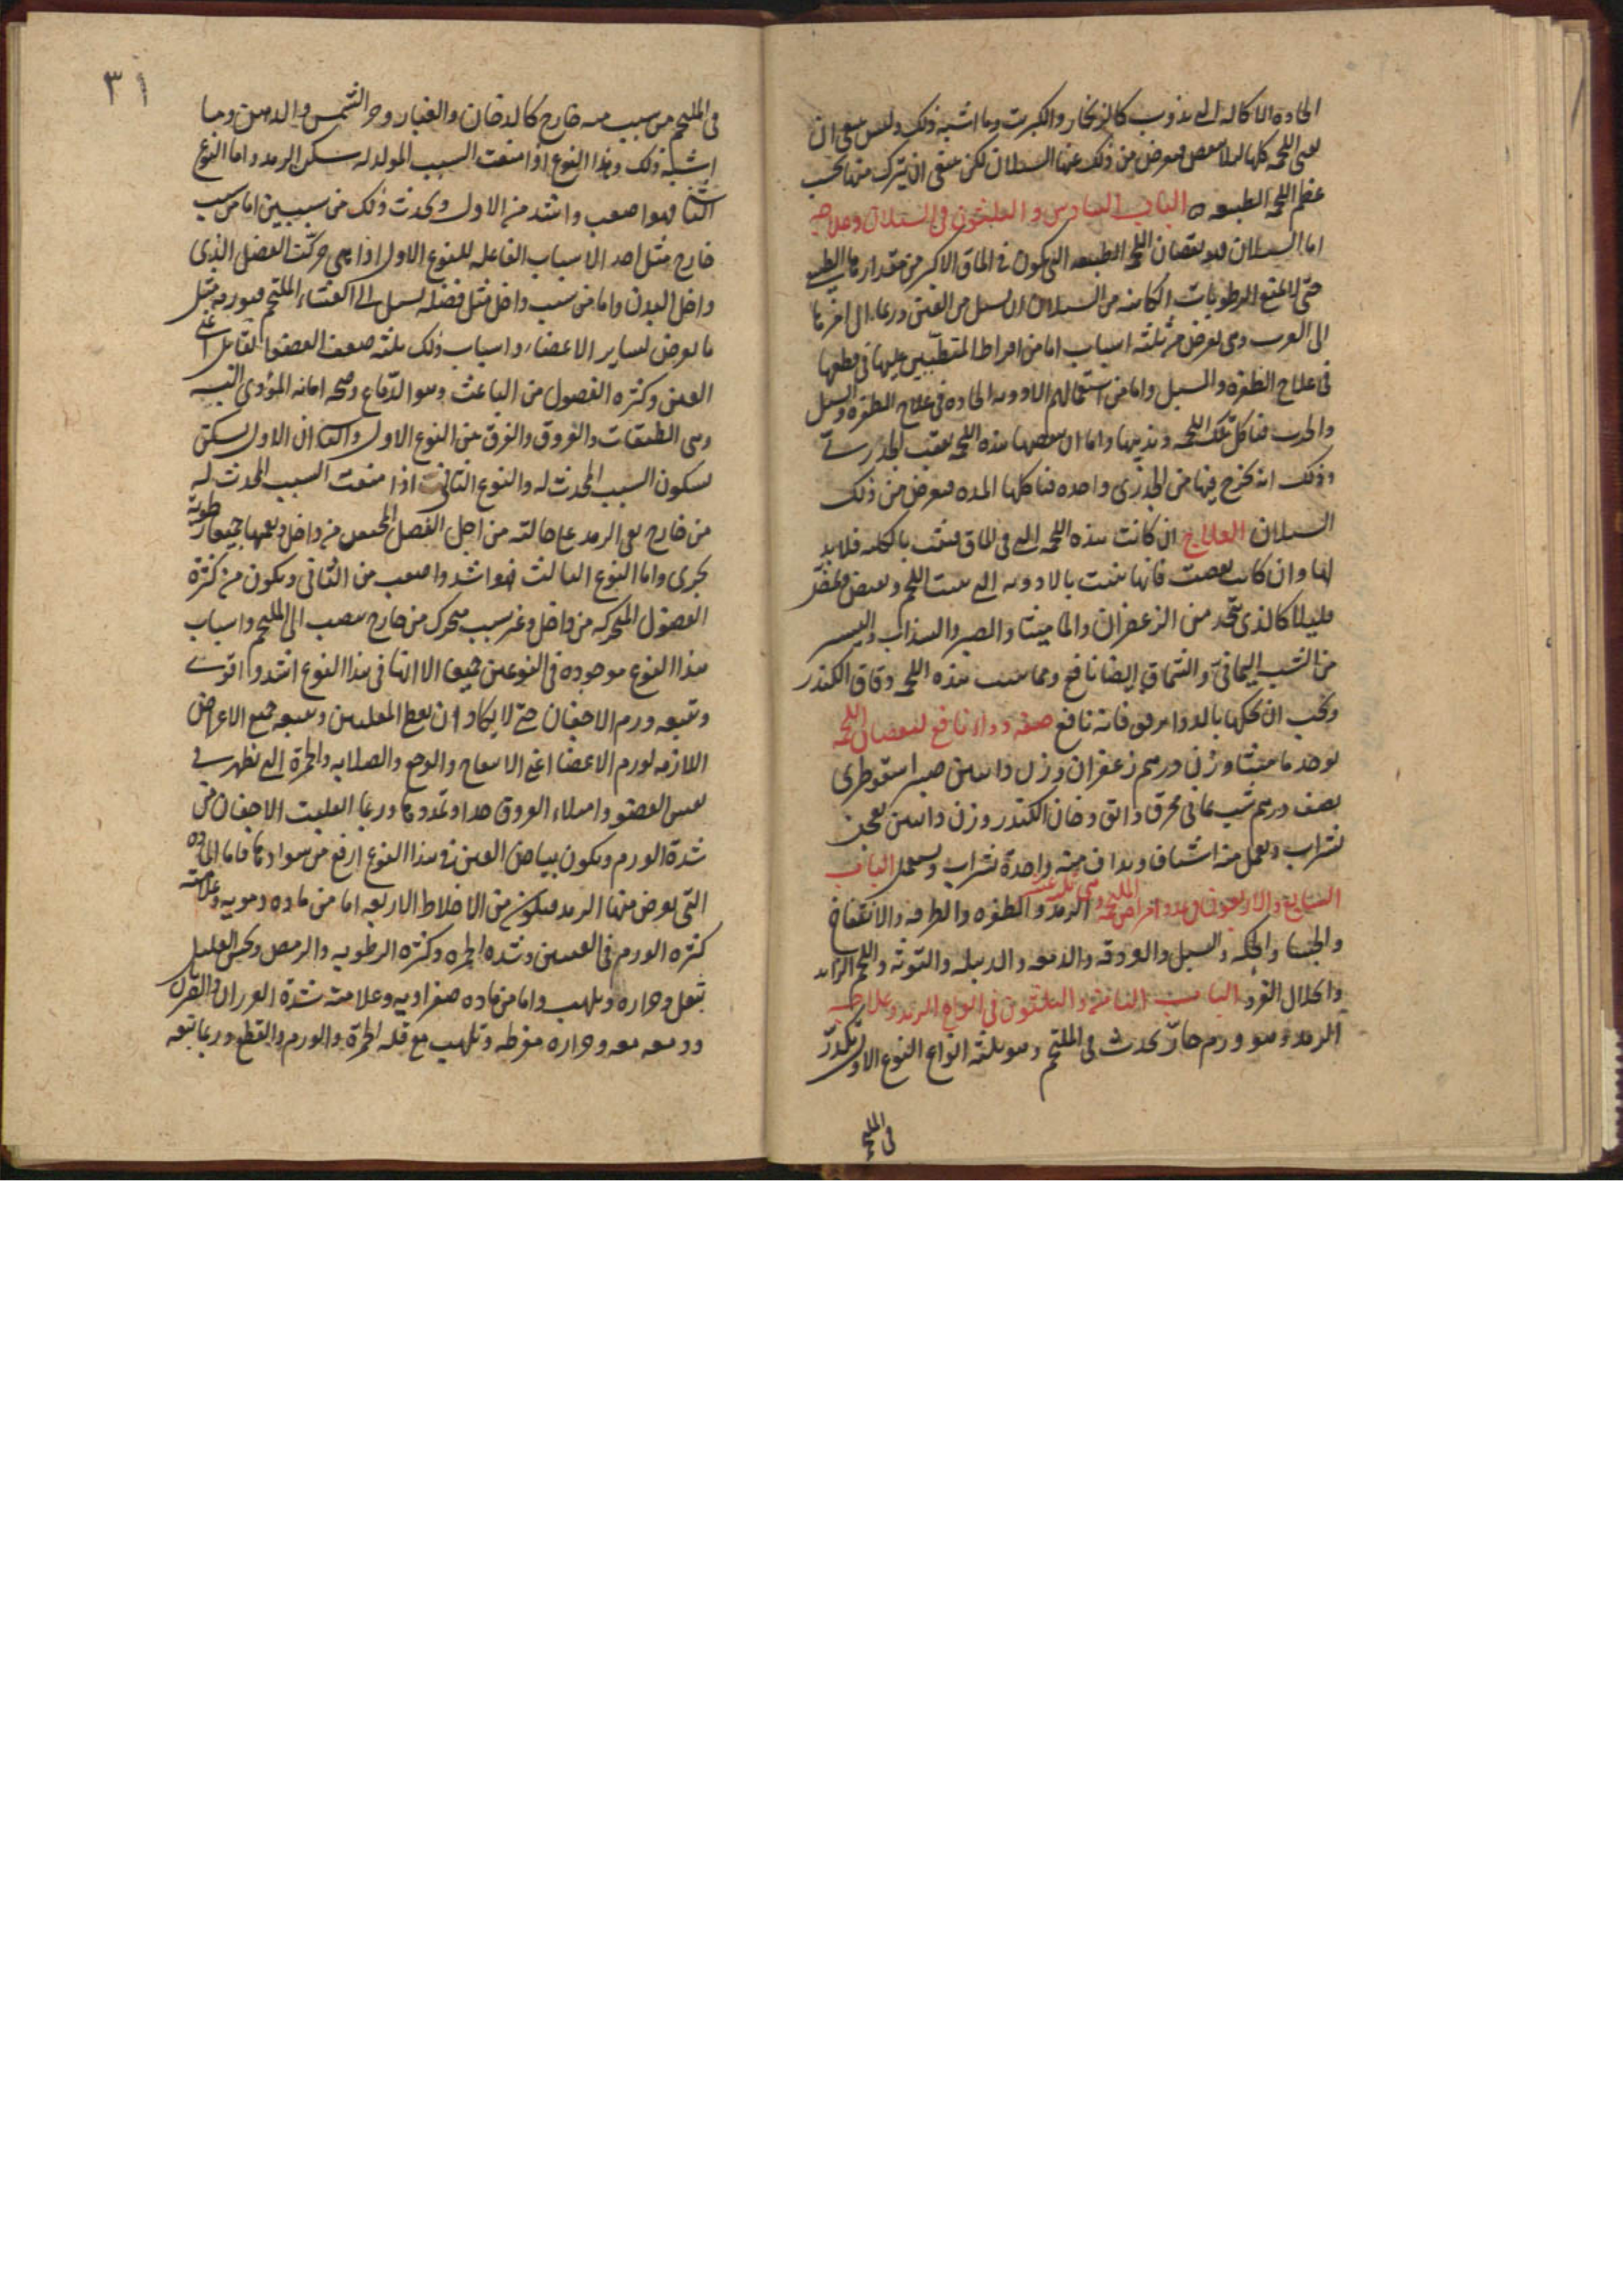 الحاده الاكاله التى تذوب كالزنجار والكبريت وما اشبه ذلك وليس ينبغى ان
يفنى اللحمه كلها لىلا ينقص فيعرض من ذلك عنها السيلان لكن ينبغى ان يترك منها بحسب
عظم اللحمه الطبيعيه الباب السادس والثلثون فى السيلان وعلاجه
اما السيلان فهو نقصان اللحمه الطبيعيه التى تكون فى الماق الاكبر من مقدارها الطبيعى
حتى لا تمنع الرطوبات الكامنه من السيلان ان تسيل من العين وربما ال امرها
الى الغرب وهى تعرض من ثلثه اسباب اما من افراط المتطببين عليها فى قطعها
فى علاج الظفره والسبل واما من استعمالهم الادويه الحاده فى علاج الظفره والسبل
والجرب فتاكل تلك اللحمه وتذيبها واما ان ينقصها هذه اللحمه بعقب الجدرى
وذلك انه يخرج فيها من الجدرى واحده فتاكلها المده فيعرض من ذلك
السيلان العلاج ان كانت هذه اللحمه التى فى الماق فنيت بالكليه فلا بد
لها وان كانت نقصت فانها تنبت بالادويه التى تنبت اللحم وتقبض وتجفف
قليلا كالذى يتخذ من الزعفران والماميثا والصبر والسذاب واليسير
من الشب اليمانى والسماق ايضا نافع ومما ينبت هذه اللحمه دقاق الكندر
ويجب ان تحكها بالدواء برفق فانه نافع صفة دواء نافع لنقصان اللحمه
يوخذ ماميثا وزن درهم زعفران وزن دانقين صبر اسقوطرى
نصف درهم شب يمانى محرق دانق دخان الكندر وزن دانقين يعجن
بشراب ويعمل منه اشياف ويداف منه واحدة بشراب ويستعمل الباب
السابع والاربعون فى عدد امراض الملتحمه وهى ثلثة عشر الرمد والظفره والطرفه والانتفاخ
والجسا والحكه والسبل والودقه والدمعه والدبيله والتوثه واللحم الزايد
وانحلال الفرد الباب الثامن والثلثون فى انواع الرمد وعلاجه
الرمد وهو ورم حار يحدث فى الملتحم وهو ثلثه انواع النوع الاول تكدر
فى الملتحم
٣١
فى الملتحم من سبب من خارج كالدخان والغبار وحر الشمس والدهن وما
اشبه ذلك وهذا النوع اذا منعت السبب المولد له سكن الرمد واما النوع
الثانى فهو اصعب واشد من الاول ويحدث ذلك من سببين اما من سبب
خارج مثل احد الاسباب الفاعله للنوع الاول اذا هى حركت الفضل الذى
داخل البدن واما من سبب داخل مثل فضله تسيل الى الغشاء الملتحم فيورمه مثل
ما يعرض لساير الاعضاء واسباب ذلك ثلثه ضعف العضو القابل اعنى
العين وكثره الفضول من الباعث وهو الدماغ وصحه امانه المؤدى اليه
وهى الطبقات والعروق والفرق بين النوع الاول والثانى ان الاول يسكن
بسكون السبب المحدث له والنوع الثانى اذا منعت السبب المحدث له
من خارج بقى الرمد على حالته من اجل الفضل المحتبس من داخل ويعمهما جميعا رطوبه
تجرى واما النوع الثالث فهو اشد واصعب من الثانى ويكون من كثرة
الفضول المتحركه من داخل وغير سبب يتحرك من خارج ينصب الى الملتحم واسباب
هذا النوع موجوده فى النوعين جميعا الا انها فى هذا النوع اشد واقوى
ويتبعه ورم الاجفان حتى لا يكاد ان يغطى المقلتين ويتبعه جميع الاعراض
اللازمه لورم الاعضا اعنى الانتفاخ والوجع والصلابه والحمرة التى تظهر فى
نفس العضو وامتلاء العروق جدا وتمددها وربما انقلبت الاجفان من
شدة الورم ويكون بياض العين فى هذا النوع ارفع من سوادها فاما الماده
التى يعرض منها الرمد فيكون من الاخلاط الاربعه اما من ماده دمويه وعلامته
كثره الورم فى العينين وشده الحمره وكثره الرطوبه والرمص ويحس العليل
بثقل وحراره وتلهب واما من ماده صفراويه وعلامته شدة الضربان
ودمعه معه وحراره مفرطه وتلهب مع قله الحمرة والورم والقطع وربما تبعه